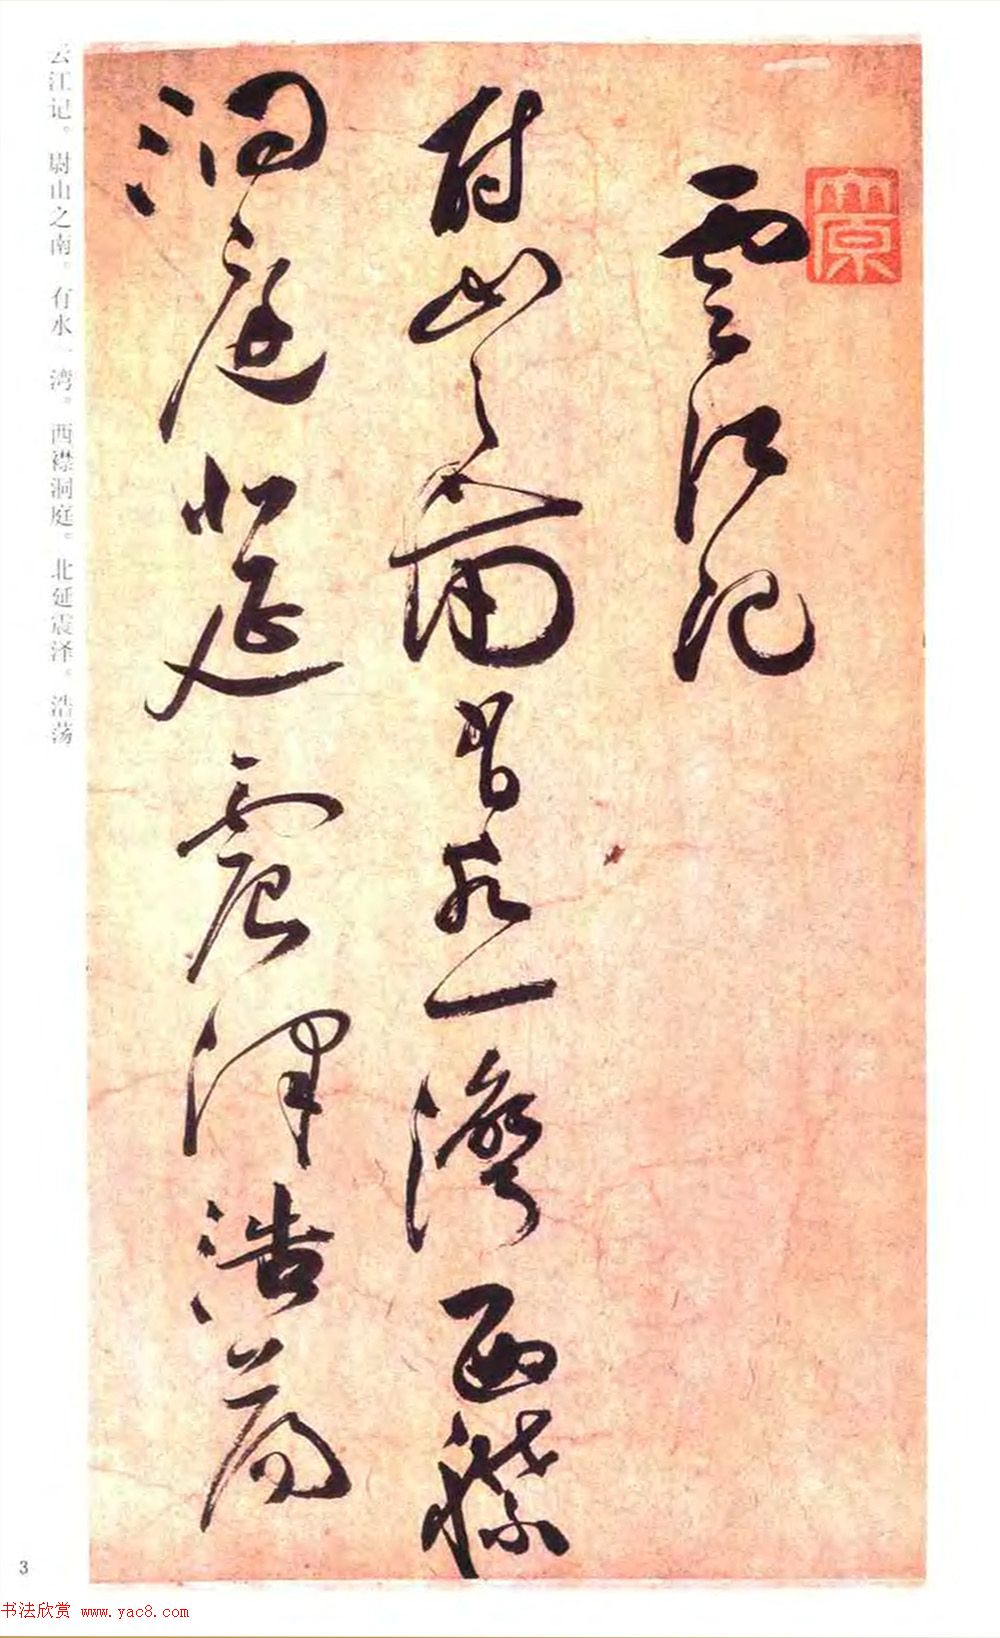 雲江记
尉山之南有水一灣西襟
洞庭北延震澤浩蕩
云江记。尉山之南。有水一湾。西襟洞庭。北延震泽。浩荡
3
书法欣赏 www.yac8.com